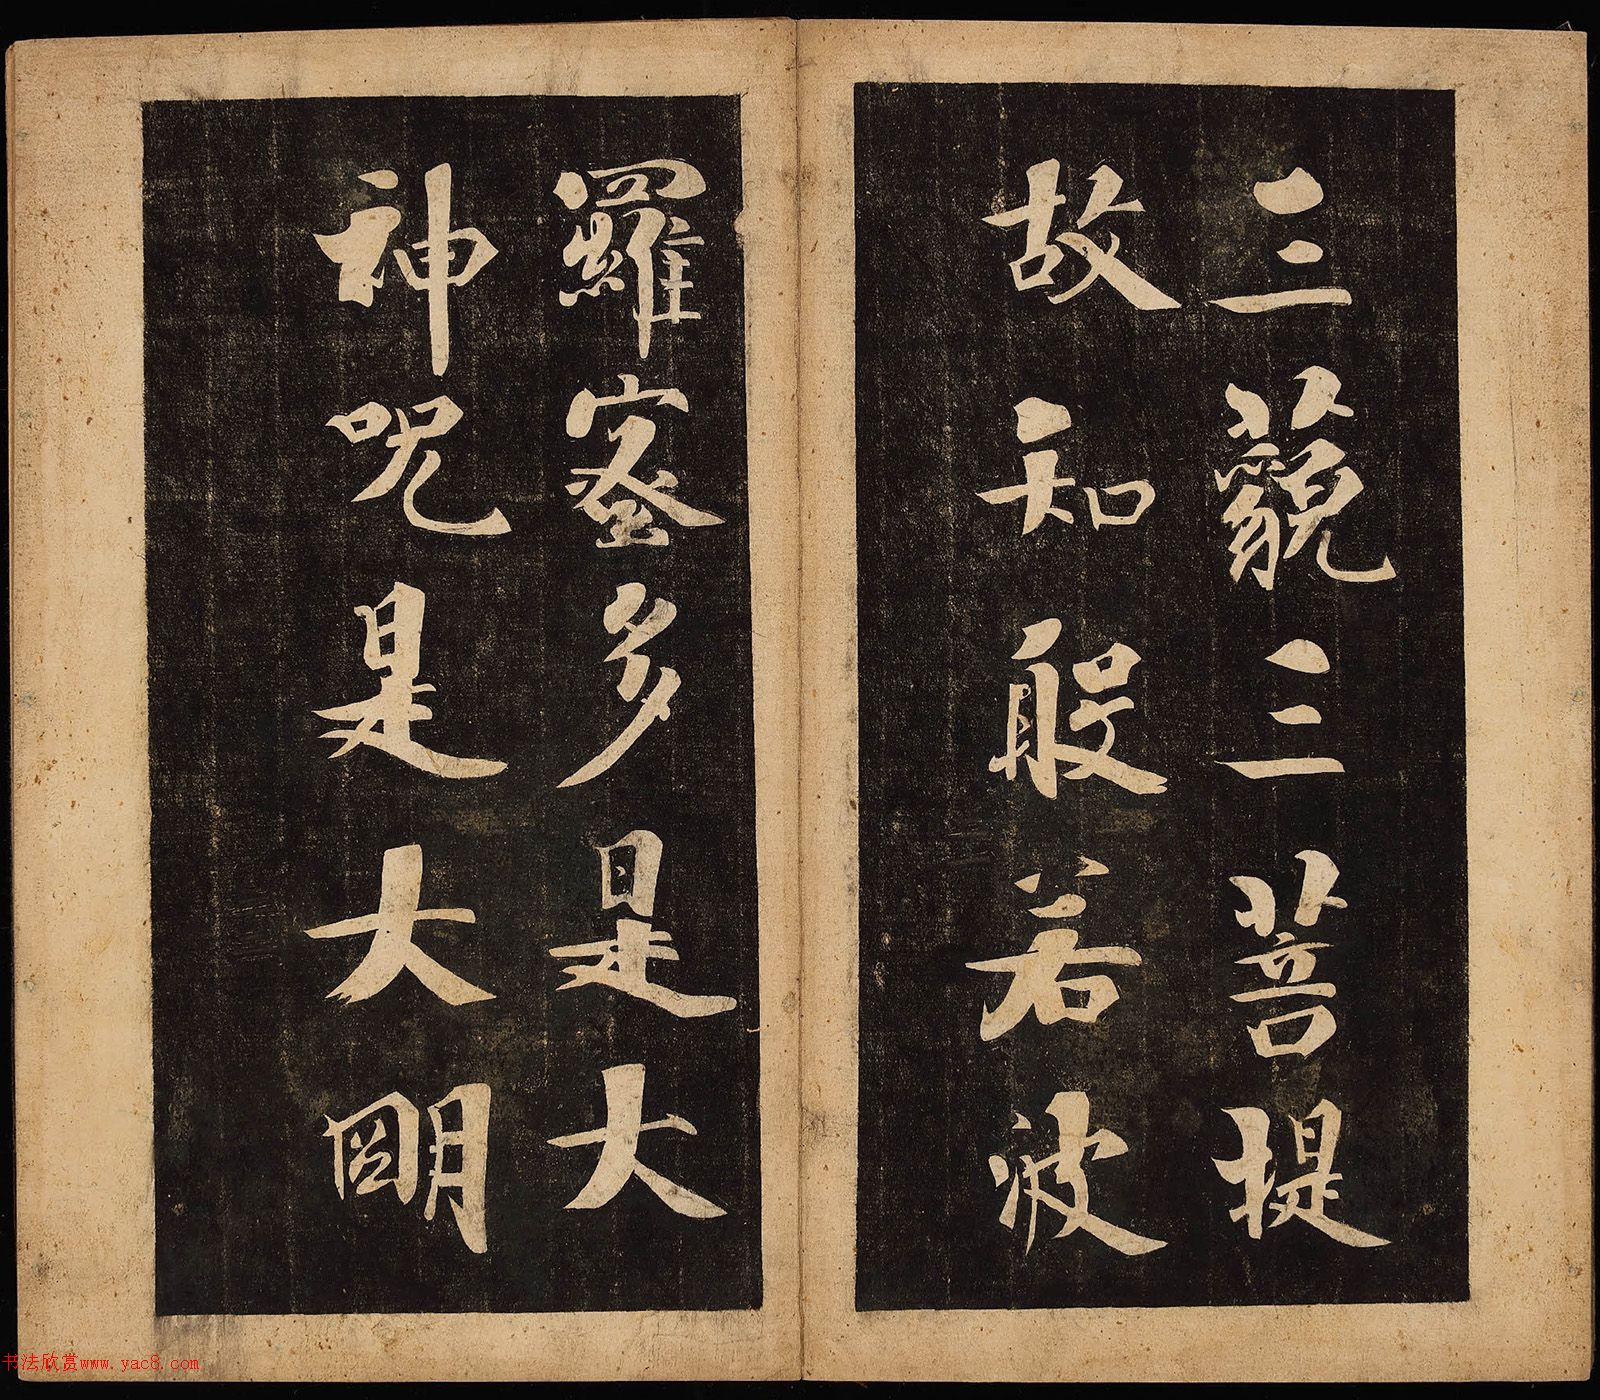 三藐三菩提
故知般若波
羅蜜多是大
神咒是大明
书法欣赏www.yac8.com